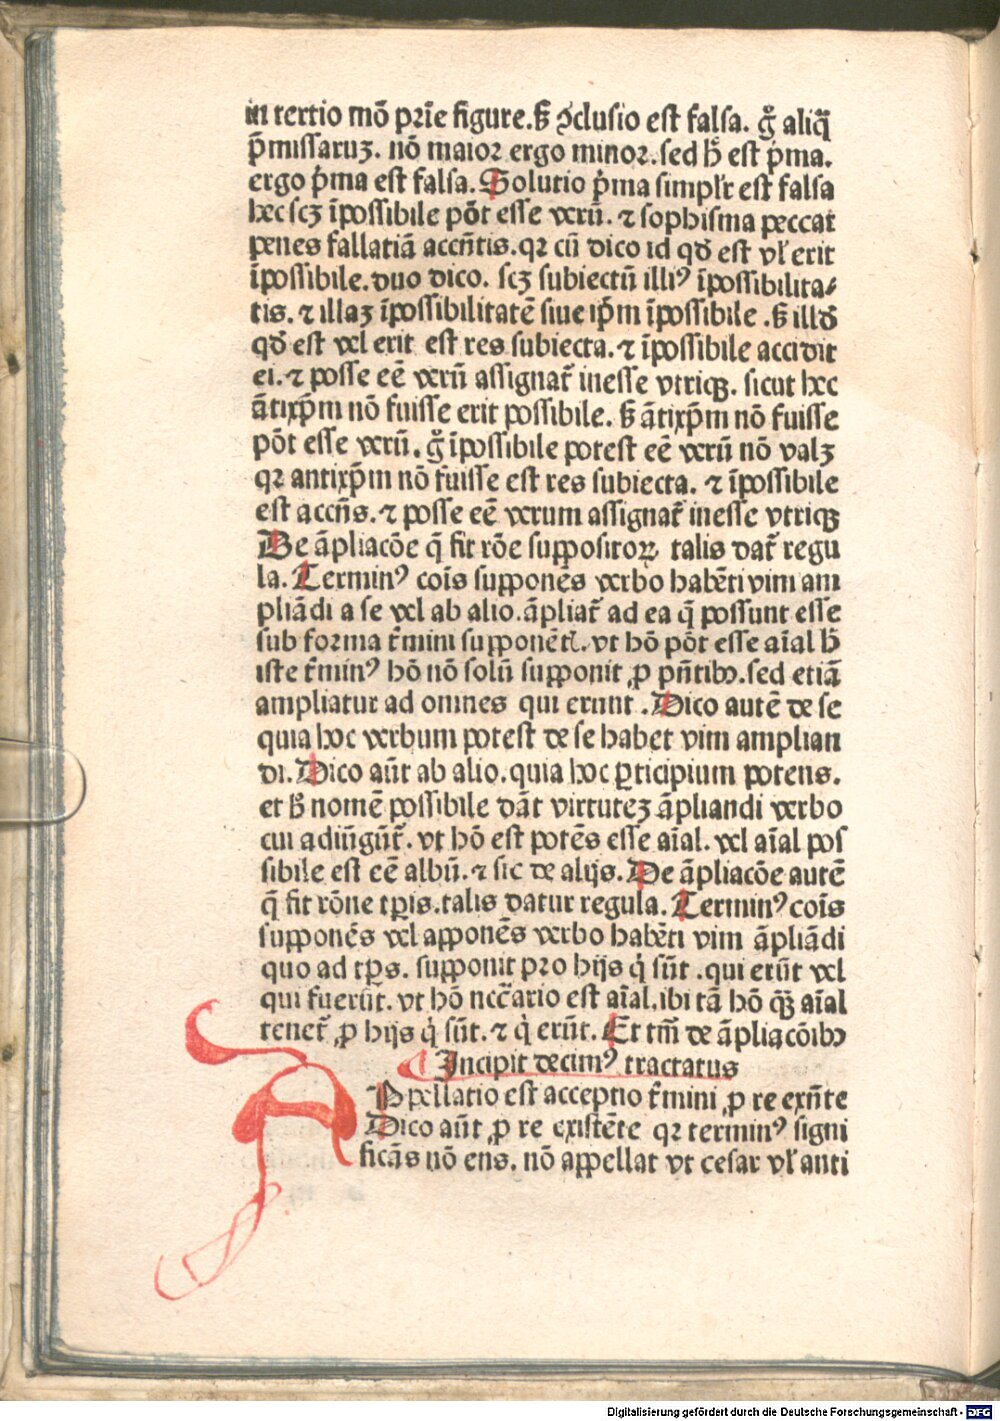 in tertio mō prīe figure. ß ꝯclusio est falsa. gͦ aliq̄
p̄missaruꝫ. nō maior ergo minor. sed hͦ est pͥma.
ergo pͥma est falsa. Solutio pͥma simplr̄ est falsa
hec scꝫ īpossibile pōt esse verū. ⁊ sophisma peccat
penes fallatiā accn̄tis. qꝛ cū dico id qđ est vl̓ erit
īpossibile. duo dico. scꝫ subiectū illiꝰ īpossibilita⸗
tis. ⁊ illaꝫ īpossibilitatē siue ip̄m īpossibile. ß illđ
qđ est vel erit est res subiecta. ⁊ īpossibile accidit
ei. ⁊ posse eē verū assignat̄ inesse vtriqꝫ. sicut hec
ātixp̄m nō fuisse erit possibile. ß ātixp̄m nō fuisse
pōt esse verū. gͦ īpossibile potest eē verū nō valꝫ
qꝛ antixp̄m nō fuisse est res subiecta. ⁊ īpossibile
est accn̄s. ⁊ posse eē verum assignat̄ inesse vtriqꝫ
De āpliacōe q̄ fit rōe suppositoꝝ talis dat̄ regu
la. Terminꝰ cois̄ supponēs verbo habēti vim am
pliādi a se vel ab alio. āpliat̄ ad ea q̄ possunt esse
sub forma t̄mini supponētꝭ. vt hō pōt esse aīal hͦ
iste t̄minꝰ hō nō solū supponit ꝓ pn̄tibꝰ. sed etiā
ampliatur ad omnes qui erunt. Dico autē de se
quia hoc verbum potest de se habet vim amplian
di. Dico aūt ab alio. quia hoc ꝑticipium potens.
et hͦ nomē possibile dāt virtuteꝫ āpliandi verbo
cui adiūgūt̄. vt hō est potēs esse aīal. vel aīal pos
sibile est eē albū. ⁊ sic de alijs. De āpliacōe autē
q̄ fit rōne tꝑis. talis datur regula. Terminꝰ cois̄
supponēs vel apponēs verbo habēti vim āpliādi
quo ad tp̄s. supponit pro hijs qͥ sūt. qui erūt vel
qui fuerūt. vt hō nccārio est aīal. ibi tā hō qꝫ aīal
tenet̄ ꝓ hijs qͥ sūt. ⁊ qͥ erūt. Et tm̄ de āpliacōibꝰ
Incipit decimꝰ tractatus
Appellatio est acceptio t̄mini ꝓ re exn̄te
Dico aūt ꝓ re existēte qꝛ terminꝰ signi
ficās nō ens. nō appellat vt cesar vl̓ anti
Digitalisierung gefördert durch die Deutsche Forschungsgemeinschaft - DFG